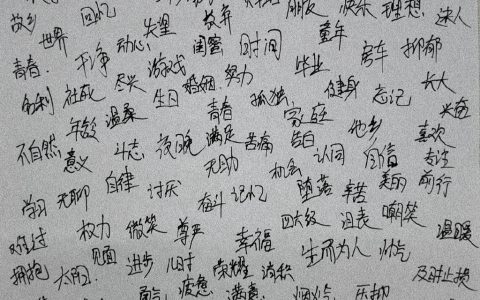 故乡 回忆 失望 放弃 朋友 快乐 理想 迷人
世界 动心 闺蜜 旧时间 童年
青春 干净 游戏 婚姻 努力 毕业 房车 抑郁
名利 社死 尽兴 生日 青春 孤独 健身 忘记 长大
年龄 温柔 家庭 他乡 兴奋
不自然 意义 斗志 夜晚 满足 苦痛 告白 喜欢
无助 机会 认同 自信 专注
学习 无聊 自律 讨厌 奋斗 记忆 堕落 辛苦 美丽 前行
难过 权力 微笑 尊严 幸福 四六级 迟表 嘲笑 温暖
拥抱 太阳 见面 进步 儿时 荣耀 消积 生而为人 帅气 及时止损
疲惫 满意 压抑